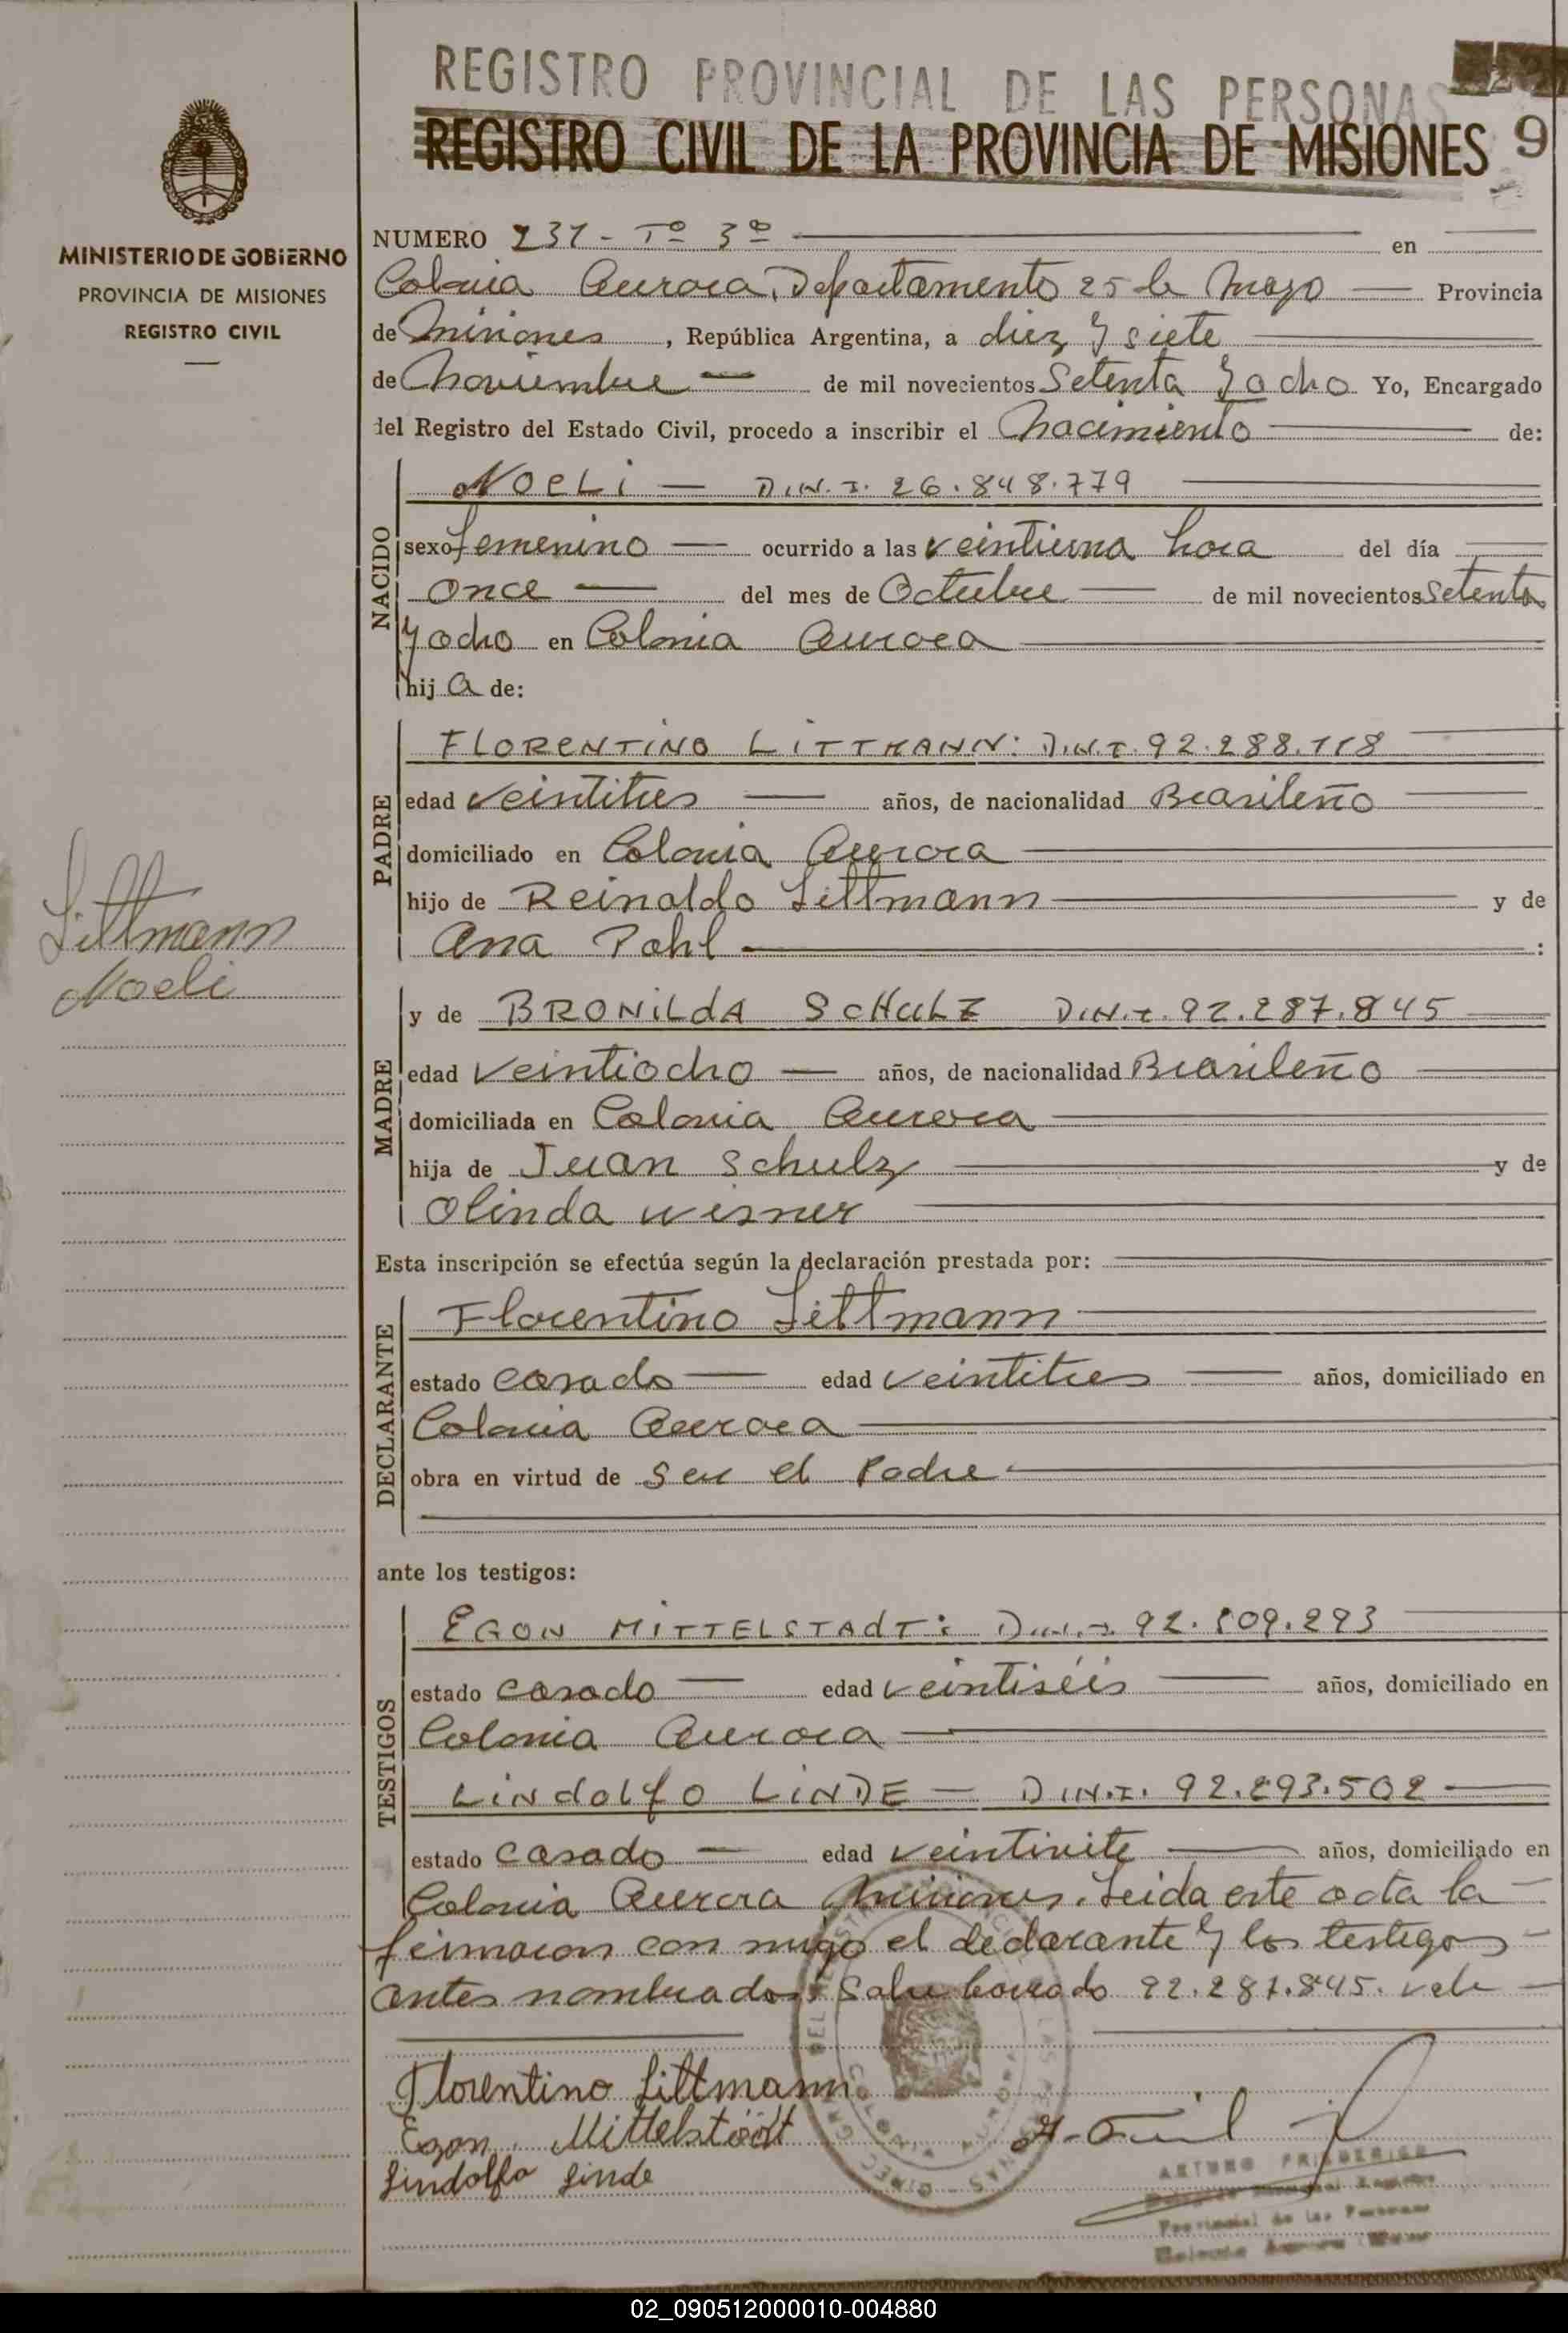 REGISTRO PROVINCIAL DE LAS PERSONAS
REGISTRO CIVIL DE LA PROVINCIA DE MISIONES 9
MINISTERIO DE GOBIERNO
PROVINCIA DE MISIONES
REGISTRO CIVIL
NUMERO 231 - Tº 3º en
Colonia Aurora, Departamento 25 de Mayo Provincia
de Misiones, República Argentina, a diez y siete
de Noviembre de mil novecientos Setenta y ocho Yo, Encargado
del Registro del Estado Civil, procedo a inscribir el Nacimiento de:
NACIDO
NOELI — D.N.I. 26.848.779
sexo femenino ocurrido a las veintiuna hora del día
once del mes de Octubre de mil novecientos setenta
y ocho en Colonia Aurora
hija de:
PADRE
FLORENTINO LITTMANN: D.N.I. 92.288.118
edad veintitres años, de nacionalidad Brasileño
domiciliado en Colonia Aurora
hijo de Reinaldo Littmann y de
Ana Pohl :
Littmann
Noeli
MADRE
y de BRONILDA SCHULZ D.N.I. 92.287.845
edad veintiocho años, de nacionalidad Brasileño
domiciliada en Colonia Aurora
hija de Juan Schulz y de
Olinda Wisner
Esta inscripción se efectúa según la declaración prestada por:
DECLARANTE
Florentino Littmann
estado casado edad veintitres años, domiciliado en
Colonia Aurora
obra en virtud de ser el Padre
ante los testigos:
TESTIGOS
EGON MITTELSTADT: D.N.I. 92.809.293
estado casado edad veintiséis años, domiciliado en
Colonia Aurora
LINDOLFO LINDE — D.N.I. 92.293.502
estado casado edad veintisite años, domiciliado en
Colonia Aurora Misiones. Leida este acta la
firmaron con migo el declarante y los testigos
antes nombrados: Sobre borrado 92.287.845. vale
Florentino Littmann
Egon Mittelstädt
Lindolfo Linde
ARTURO FRIDERICH
Provincial de las Personas
02_090512000010-004880